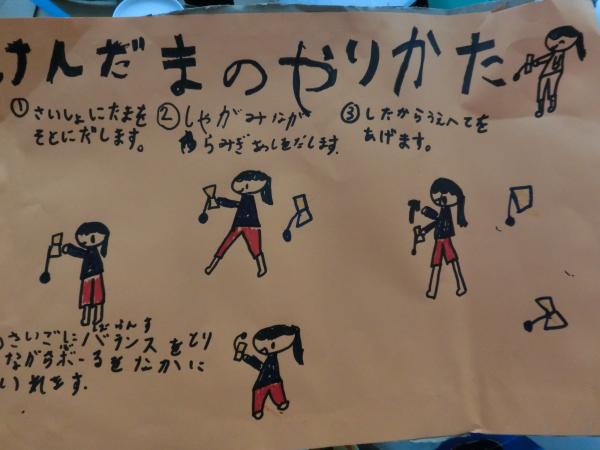 けんだまのやりかた
①さいしょにたまを
そとにだします。
②しゃがみなが
らみぎあしをだします.
③したからうえへてを
あげます。
さいごにバランスをとり
ばらんす
ながらボールをなかに
いれます.